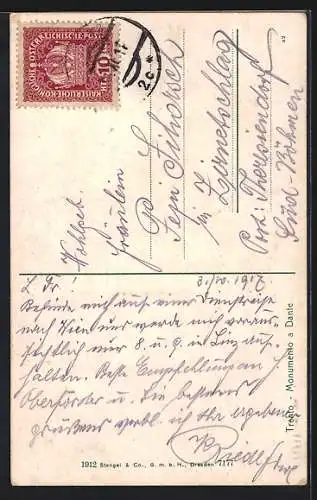 KAISERLICHE KÖNIGLICHE ÖSTERREICHISCHE POST
10
2c *
Wohlgeb.
Fräulein
Pepi
in Zirnetschlag
Post: Theresiendorf
Süd-Böhmen
L. Fr!
3./IV. 1917
Befinde mich auf einer Dienstreise
nach Wien und werde mich voraus-
sichtlich nur 8. u. 9. in Linz auf-
halten. Beste Empfehlungen H.
Oberförster u. Sie bestens
grüssend verbl. ich Ihr ergebener
Trento - Monumento a Dante
1912 Stengel & Co., G. m. b. H., Dresden 7177